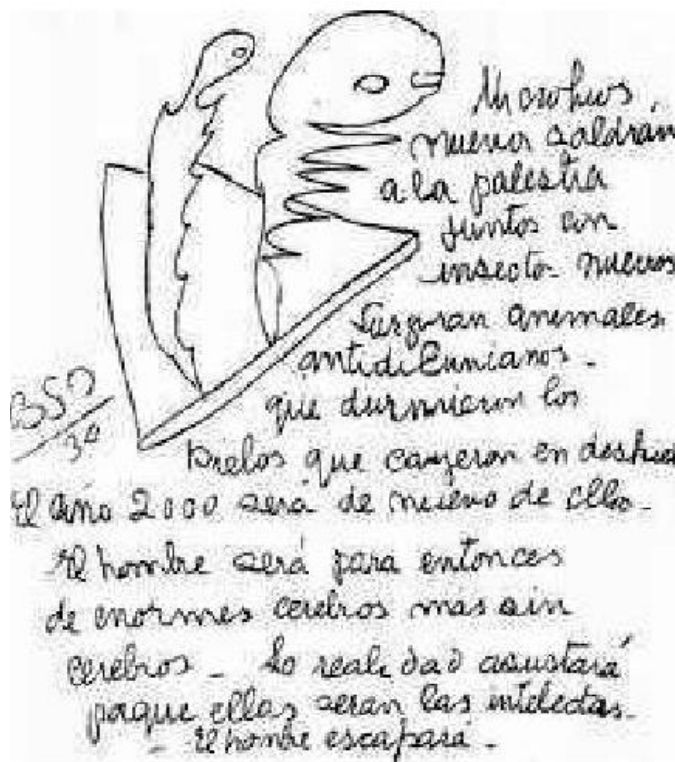 nuevos saldran
a la palestra
juntos con
insecto nuevos
Surgiran animales
antidilunianos -
que durmieron los
hielos que cayeron en deshielo
El año 2000 sera de nuevo de ellos -
El hombre será para entonces
de enormes cerebros mas sin
cerebros - La realidad asustará
porque ellas seran las intelectas -
- El hombre escapará -
BSP
3º